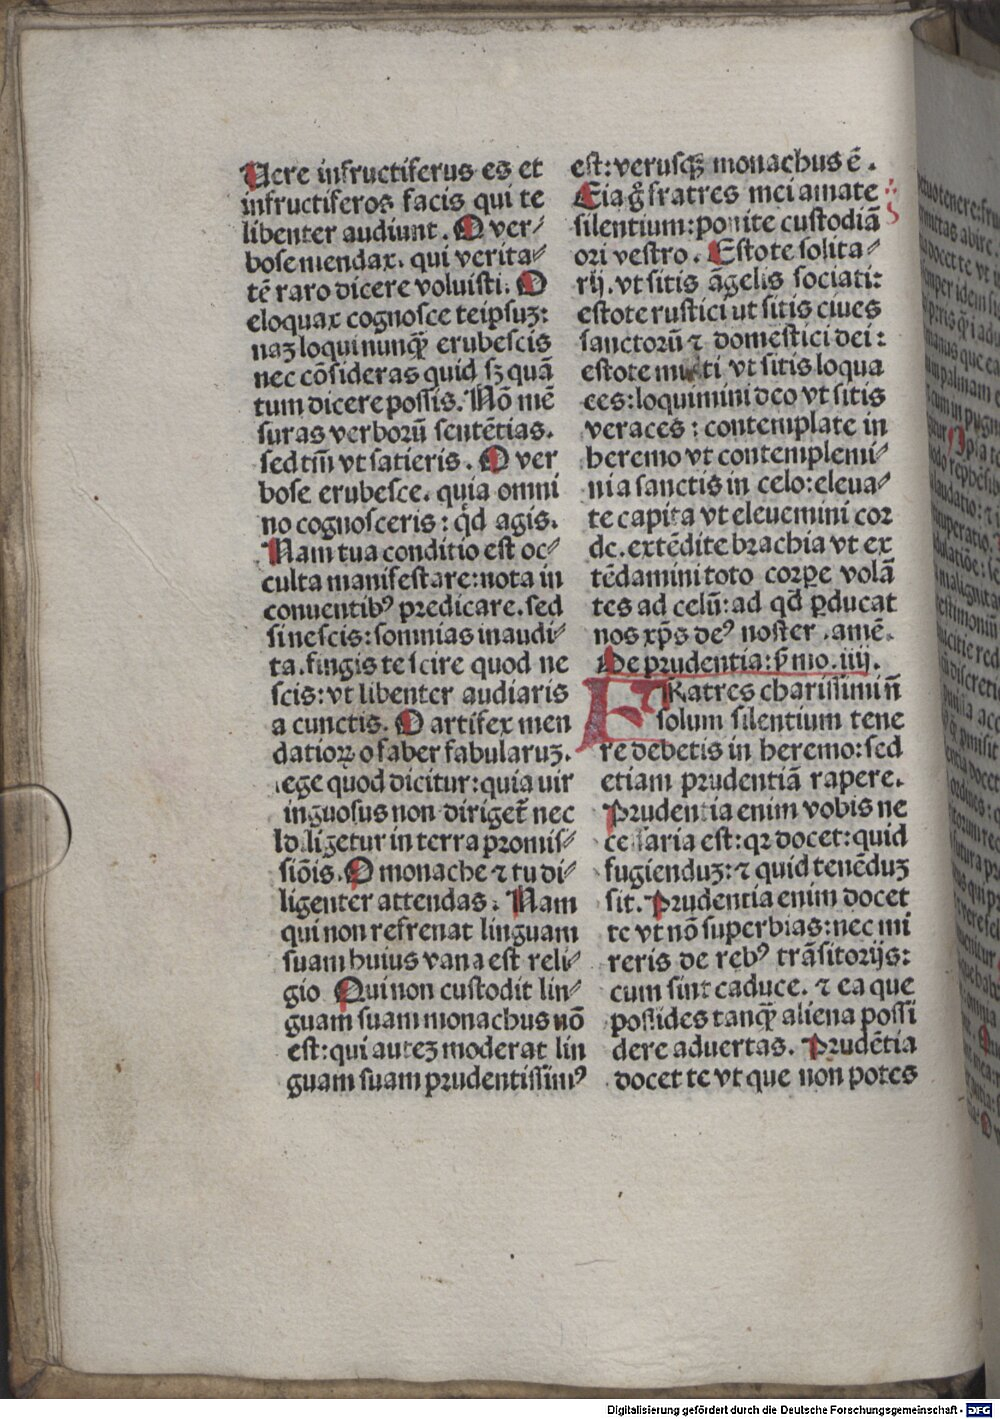 Uere infructiferus es et
infructiferos facis qui te
libenter audiunt. O ver⸗
bose mendax. qui verita⸗
tē raro dicere voluisti. O
eloquax cognosce teipsuꝫ:
naꝫ loqui nunqꝫ̄ erubescis
nec cōsideras quid sꝫ quā
tum dicere possis. Nō mē
suras verborū sentētias.
sed tm̄ vt satieris. O ver
bose erubesce. quia omni
no cognosceris: qd̓ agis.
Nam tua conditio est oc⸗
culta manifestare: nota in
conuentibꝰ predicare. sed
si nescis: somnias inaudi⸗
ta. fingis te scire quod ne
scis: vt libenter audiaris
a cunctis. O artifex men
datioꝝ o faber fabularuꝫ.
ege quod dicitur: quia uir
inguosus non dirigeť nec
ligetur in terra promis⸗
siōis. O monache ⁊ tu di⸗
ligenter attendas. Nam
qui non refrenat linguam
suam huius vana est reli⸗
gio Qui non custodit lin⸗
guam suam monachus nō
est: qui auteꝫ moderat lin
guam suam prudentissimꝰ
est: verusqꝫ monachus ē.
Eia gͦ fratres mei amate
silentium: ponite custodiā
ori vestro. Estote solita⸗
rij. vt sitis āgelis sociati:
estote rustici ut sitis ciues
sanctorū ⁊ domestici dei:
estote muti vt sitis loqua
ces: loquimini deo vt sitis
veraces: contemplate in
heremo vt contemplemi⸗
ni a sanctis in celo: eleua⸗
te capita vt eleuemini cor
de. extēdite brachia vt ex
tēdamini toto corꝑe volā
tes ad celū: ad qd̓ ꝑducat
nos xp̄s deꝰ noster. amē.
De prudentia: ẜmo. iiij.
FRatres charissimi nō
solum silentium tene
re debetis in heremo: sed
etiam prudentiā rapere.
Prudentia enim vobis ne
cessaria est: qꝛ docet: quid
fugienduꝫ: ⁊ quid tenēduꝫ
sit. Prudentia enim docet
te vt nō superbias: nec mi
reris de rebꝰ trāsitorijs:
cum sint caduce. ⁊ ea que
possides tanqꝫ̄ aliena possi
dere aduertas. Prudētia
docet te vt que non potes
Digitalisierung gefördert durch die Deutsche Forschungsgemeinschaft - DFG